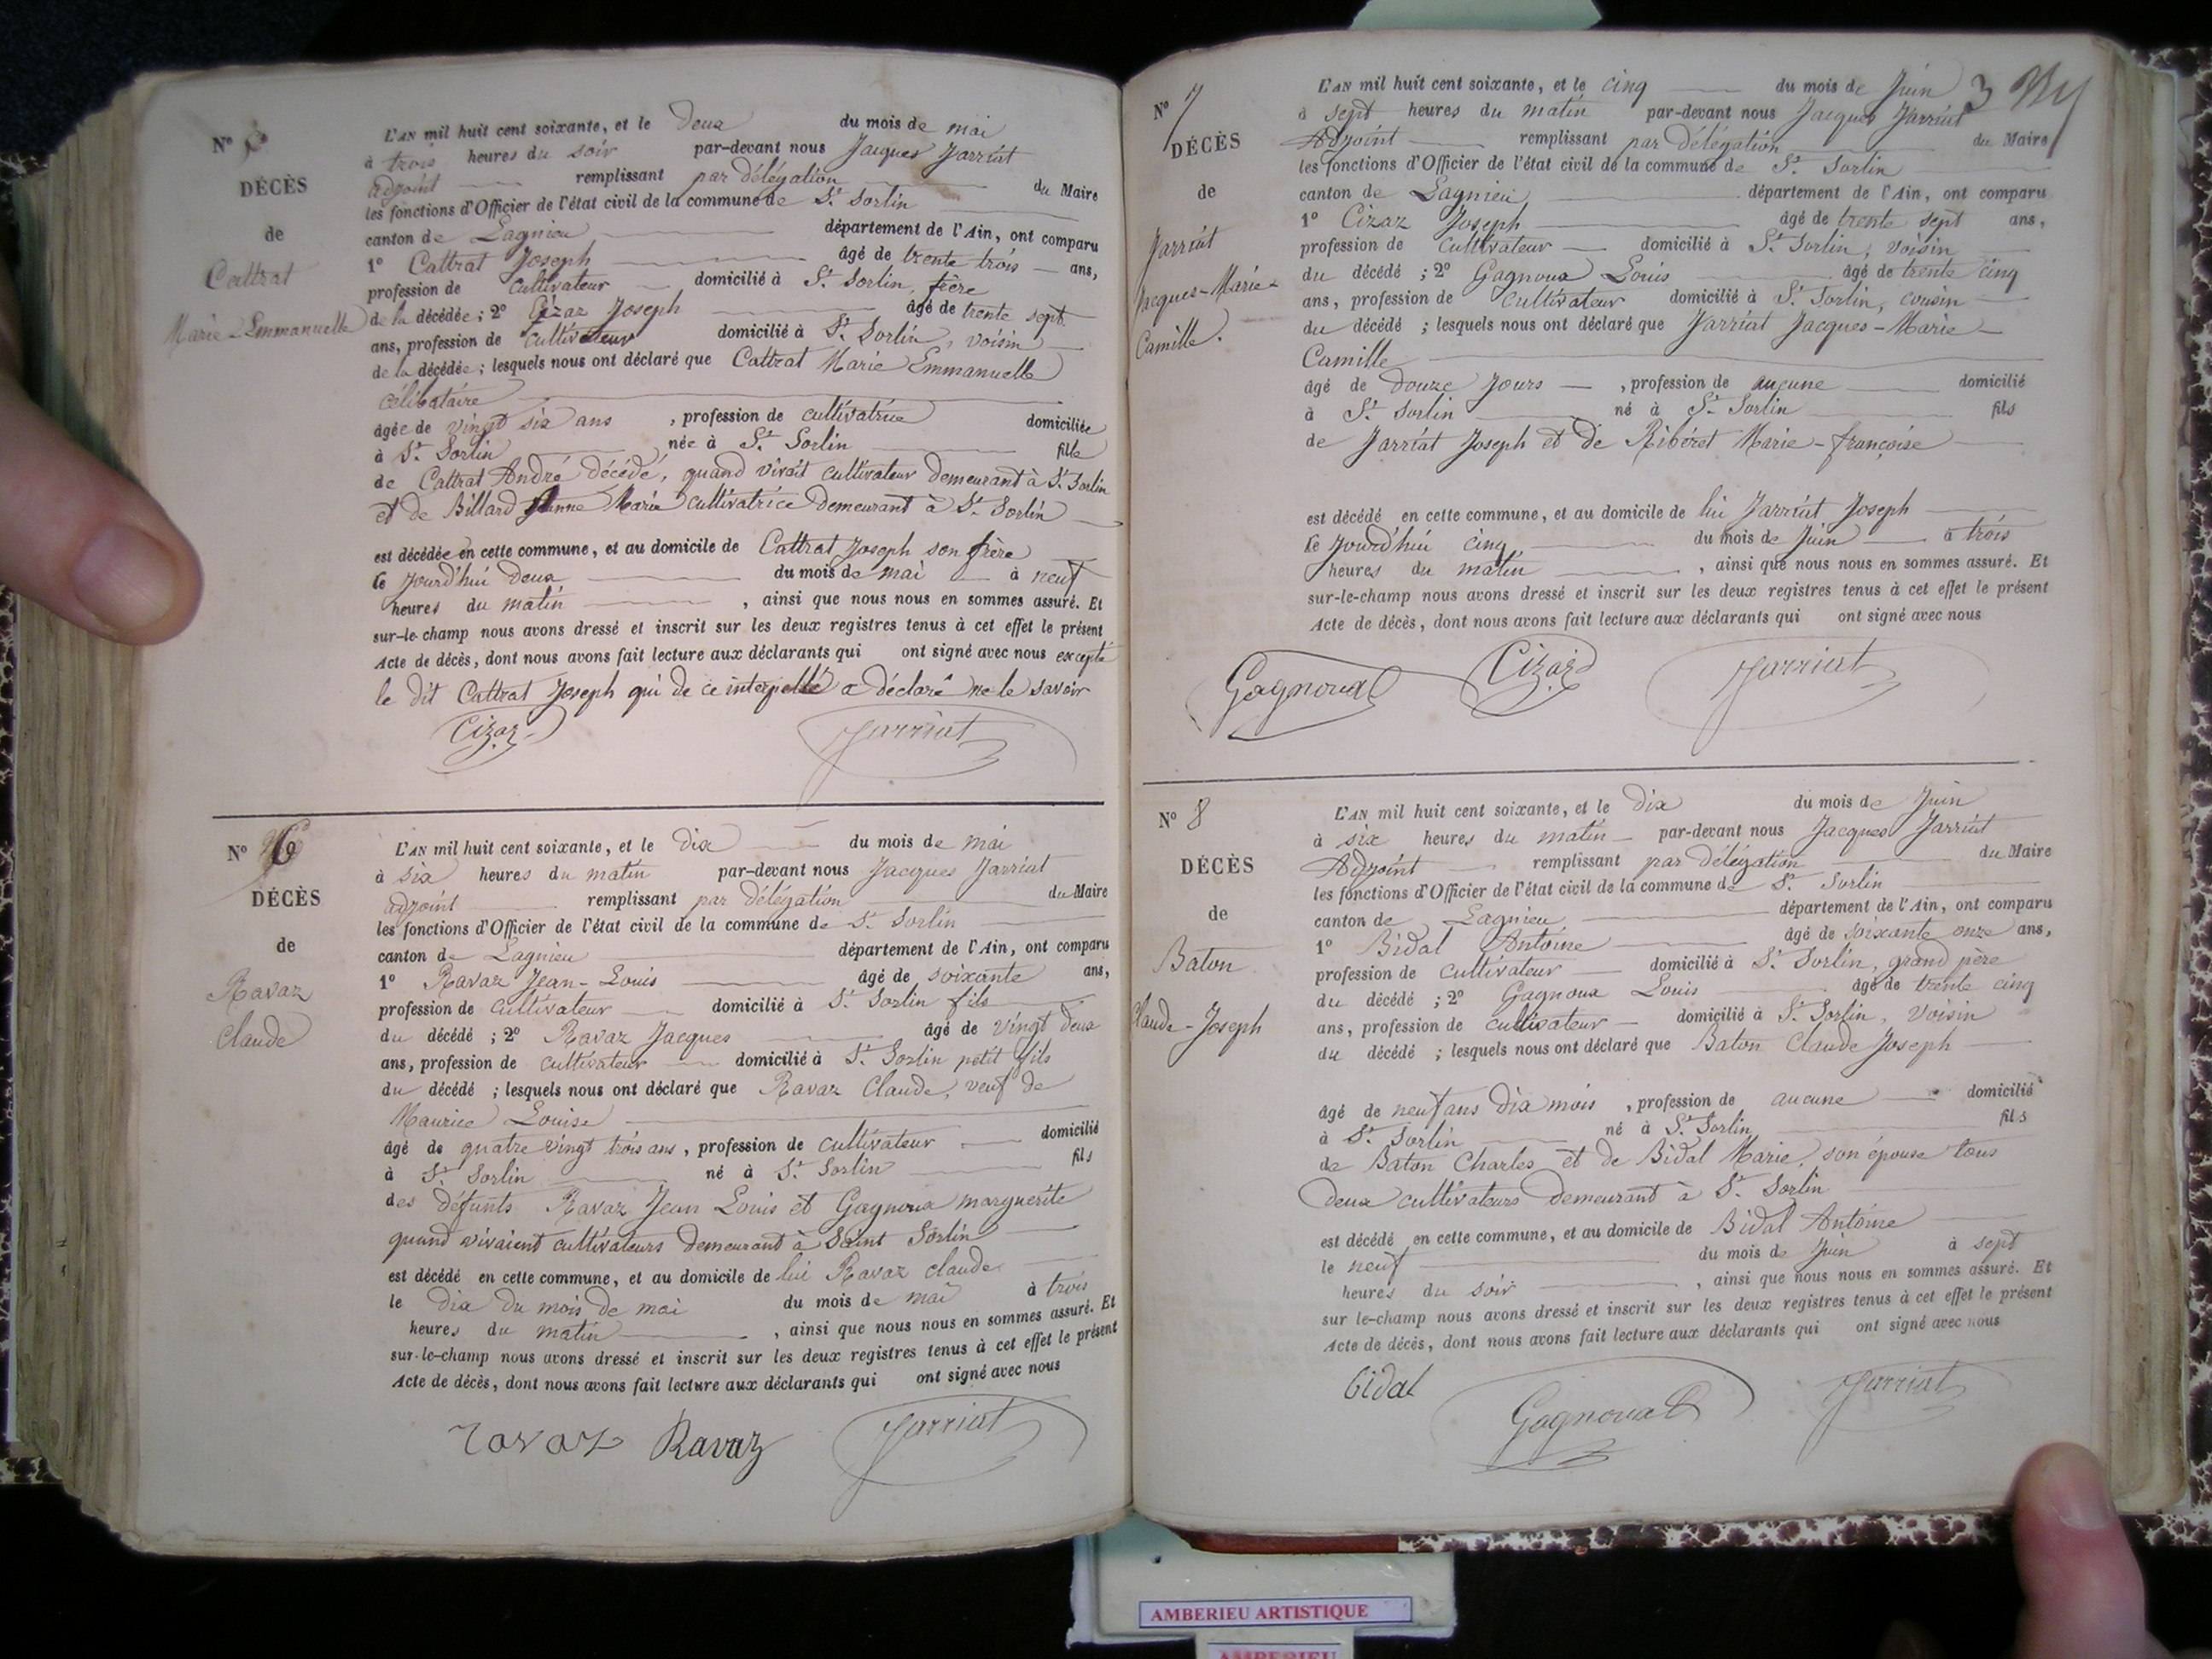 N° 5
DÉCÈS
de
Cattrat
Marie-Emmanuelle
L'AN mil huit cent soixante, et le deux du mois de mai
à trois heures du soir par-devant nous Jacques Jarriat
adjoint remplissant par délégation du Maire
les fonctions d'Officier de l'état civil de la commune de St Sorlin
canton de Lagnieu département de l'Ain, ont comparu
1° Cattrat Joseph âgé de trente trois ans,
profession de cultivateur domicilié à St Sorlin, frère
de la décédée; 2° Cizaz Joseph âgé de trente sept
ans, profession de cultivateur domicilié à St Sorlin, voisin
de la décédée; lesquels nous ont déclaré que Cattrat Marie Emmanuelle
célibataire
âgée de vingt six ans, profession de cultivatrice domiciliée
à St Sorlin née à St Sorlin fille
de Cattrat André décédé, quand vivait cultivateur demeurant à St Sorlin
et de Billard Jeanne Marie cultivatrice demeurant à St Sorlin
est décédée en cette commune, et au domicile de Cattrat Joseph son frère
le jourd'hui deux du mois de mai à neuf
heures du matin, ainsi que nous nous en sommes assuré. Et
sur-le-champ nous avons dressé et inscrit sur les deux registres tenus à cet effet le présent
Acte de décès, dont nous avons fait lecture aux déclarants qui ont signé avec nous excepté
le dit Cattrat Joseph qui de ce interpellé a déclaré ne le savoir
Cizaz Jarriat
N° 6
DÉCÈS
de
Ravaz
Claude
L'AN mil huit cent soixante, et le dix du mois de mai
à six heures du matin par-devant nous Jacques Jarriat
adjoint remplissant par délégation du Maire
les fonctions d'Officier de l'état civil de la commune de St Sorlin
canton de Lagnieu département de l'Ain, ont comparu
1° Ravaz Jean-Louis âgé de soixante ans,
profession de cultivateur domicilié à St Sorlin fils
du décédé; 2° Ravaz Jacques âgé de vingt deux
ans, profession de cultivateur domicilié à St Sorlin petit fils
du décédé; lesquels nous ont déclaré que Ravaz Claude, veuf de
Maurice Louise
âgé de quatre vingt trois ans, profession de cultivateur domicilié
à St Sorlin né à St Sorlin fils
des défunts Ravaz Jean Louis et Gagnoux marguerite
quand vivaient cultivateurs demeurant à Saint Sorlin
est décédé en cette commune, et au domicile de lui Ravaz claude
le dix du mois de mai du mois de mai à trois
heures du matin, ainsi que nous nous en sommes assuré. Et
sur-le-champ nous avons dressé et inscrit sur les deux registres tenus à cet effet le présent
Acte de décès, dont nous avons fait lecture aux déclarants qui ont signé avec nous
ravaz Ravaz Jarriat
3
N° 7
DÉCÈS
de
Jarriat
Jacques-Marie-
Camille.
L'AN mil huit cent soixante, et le cinq du mois de Juin
à sept heures du matin par-devant nous Jacques Jarriat
Adjoint remplissant par délégation du Maire
les fonctions d'Officier de l'état civil de la commune de St Sorlin
canton de Lagnieu département de l'Ain, ont comparu
1° Cizaz Joseph âgé de trente sept ans,
profession de cultivateur domicilié à St Sorlin, voisin
du décédé; 2° Gagnoux Louis âgé de trente cinq
ans, profession de cultivateur domicilié à St Sorlin, cousin
du décédé; lesquels nous ont déclaré que Jarriat Jacques-Marie-
Camille
âgé de douze jours, profession de aucune domicilié
à St Sorlin né à St Sorlin fils
de Jarriat Joseph et de Ribéret Marie-françoise
est décédé en cette commune, et au domicile de lui Jarriat Joseph
le jourd'hui cinq du mois de Juin à trois
heures du matin, ainsi que nous nous en sommes assuré. Et
sur-le-champ nous avons dressé et inscrit sur les deux registres tenus à cet effet le présent
Acte de décès, dont nous avons fait lecture aux déclarants qui ont signé avec nous
Gagnoux Cizaz Jarriat
N° 8
DÉCÈS
de
Baton
Claude-Joseph
L'AN mil huit cent soixante, et le dix du mois de Juin
à six heures du matin par-devant nous Jacques Jarriat
Adjoint remplissant par délégation du Maire
les fonctions d'Officier de l'état civil de la commune de St Sorlin
canton de Lagnieu département de l'Ain, ont comparu
1° Bidal Antoine âgé de soixante onze ans,
profession de cultivateur domicilié à St Sorlin, grand père
du décédé; 2° Gagnoux Louis âgé de trente cinq
ans, profession de cultivateur domicilié à St Sorlin, voisin
du décédé; lesquels nous ont déclaré que Baton Claude Joseph
âgé de neuf ans dix mois, profession de aucune domicilié
à St Sorlin né à St Sorlin fils
de Baton Charles et de Bidal Marie, son épouse tous
deux cultivateurs demeurant à St Sorlin
est décédé en cette commune, et au domicile de Bidal Antoine
le neuf du mois de Juin à sept
heures du soir, ainsi que nous nous en sommes assuré. Et
sur le-champ nous avons dressé et inscrit sur les deux registres tenus à cet effet le présent
Acte de décès, dont nous avons fait lecture aux déclarants qui ont signé avec nous
bidal Gagnoux Jarriat
AMBERIEU ARTISTIQUE
AMBERIEU